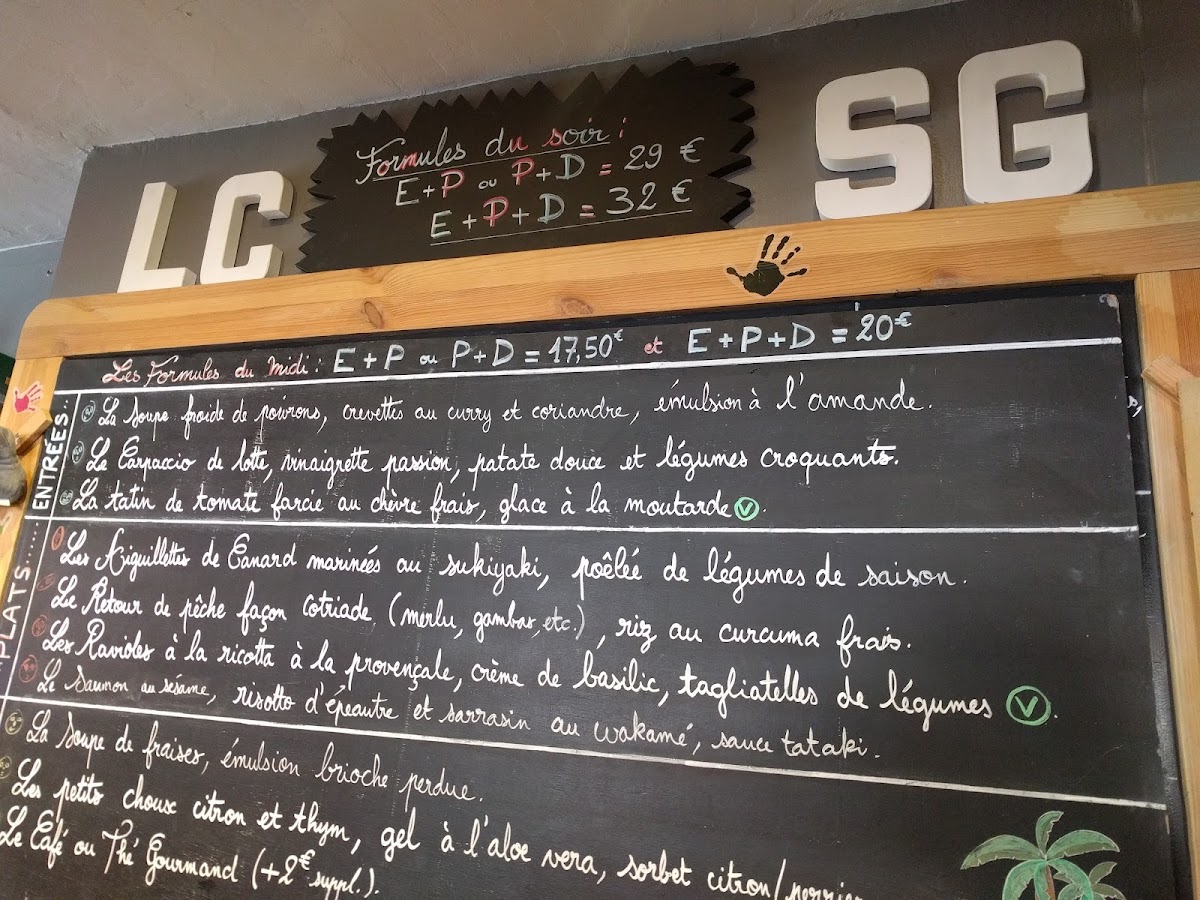 LC SG
Formules du soir :
E+P ou P+D = 29 €
E+P+D = 32 €
Les Formules du Midi : E+P ou P+D = 17,50€ et E+P+D = 20€
ENTRÉES
La Soupe froide de poivrons, crevettes au curry et coriandre, émulsion à l'amande.
Le Carpaccio de lotte, vinaigrette passion, patate douce et légumes croquants.
La tatin de tomate farcie au chèvre frais, glace à la moutarde V
PLATS
Les Aiguillettes de Canard marinées au sukiyaki, poêlée de légumes de saison.
Le Retour de pêche façon Cotriade (merlu, gambas, etc.), riz au curcuma frais.
Les Ravioles à la ricotta à la provençale, crème de basilic, tagliatelles de légumes V.
Le Saumon au sésame, risotto d'épeautre et sarrasin au wakamé, sauce tataki.
La Soupe de fraises, émulsion brioche perdue.
Les petits choux citron et thym, gel à l'aloe vera, sorbet citron/perrier
Le Café ou Thé Gourmand (+2€ suppl.).